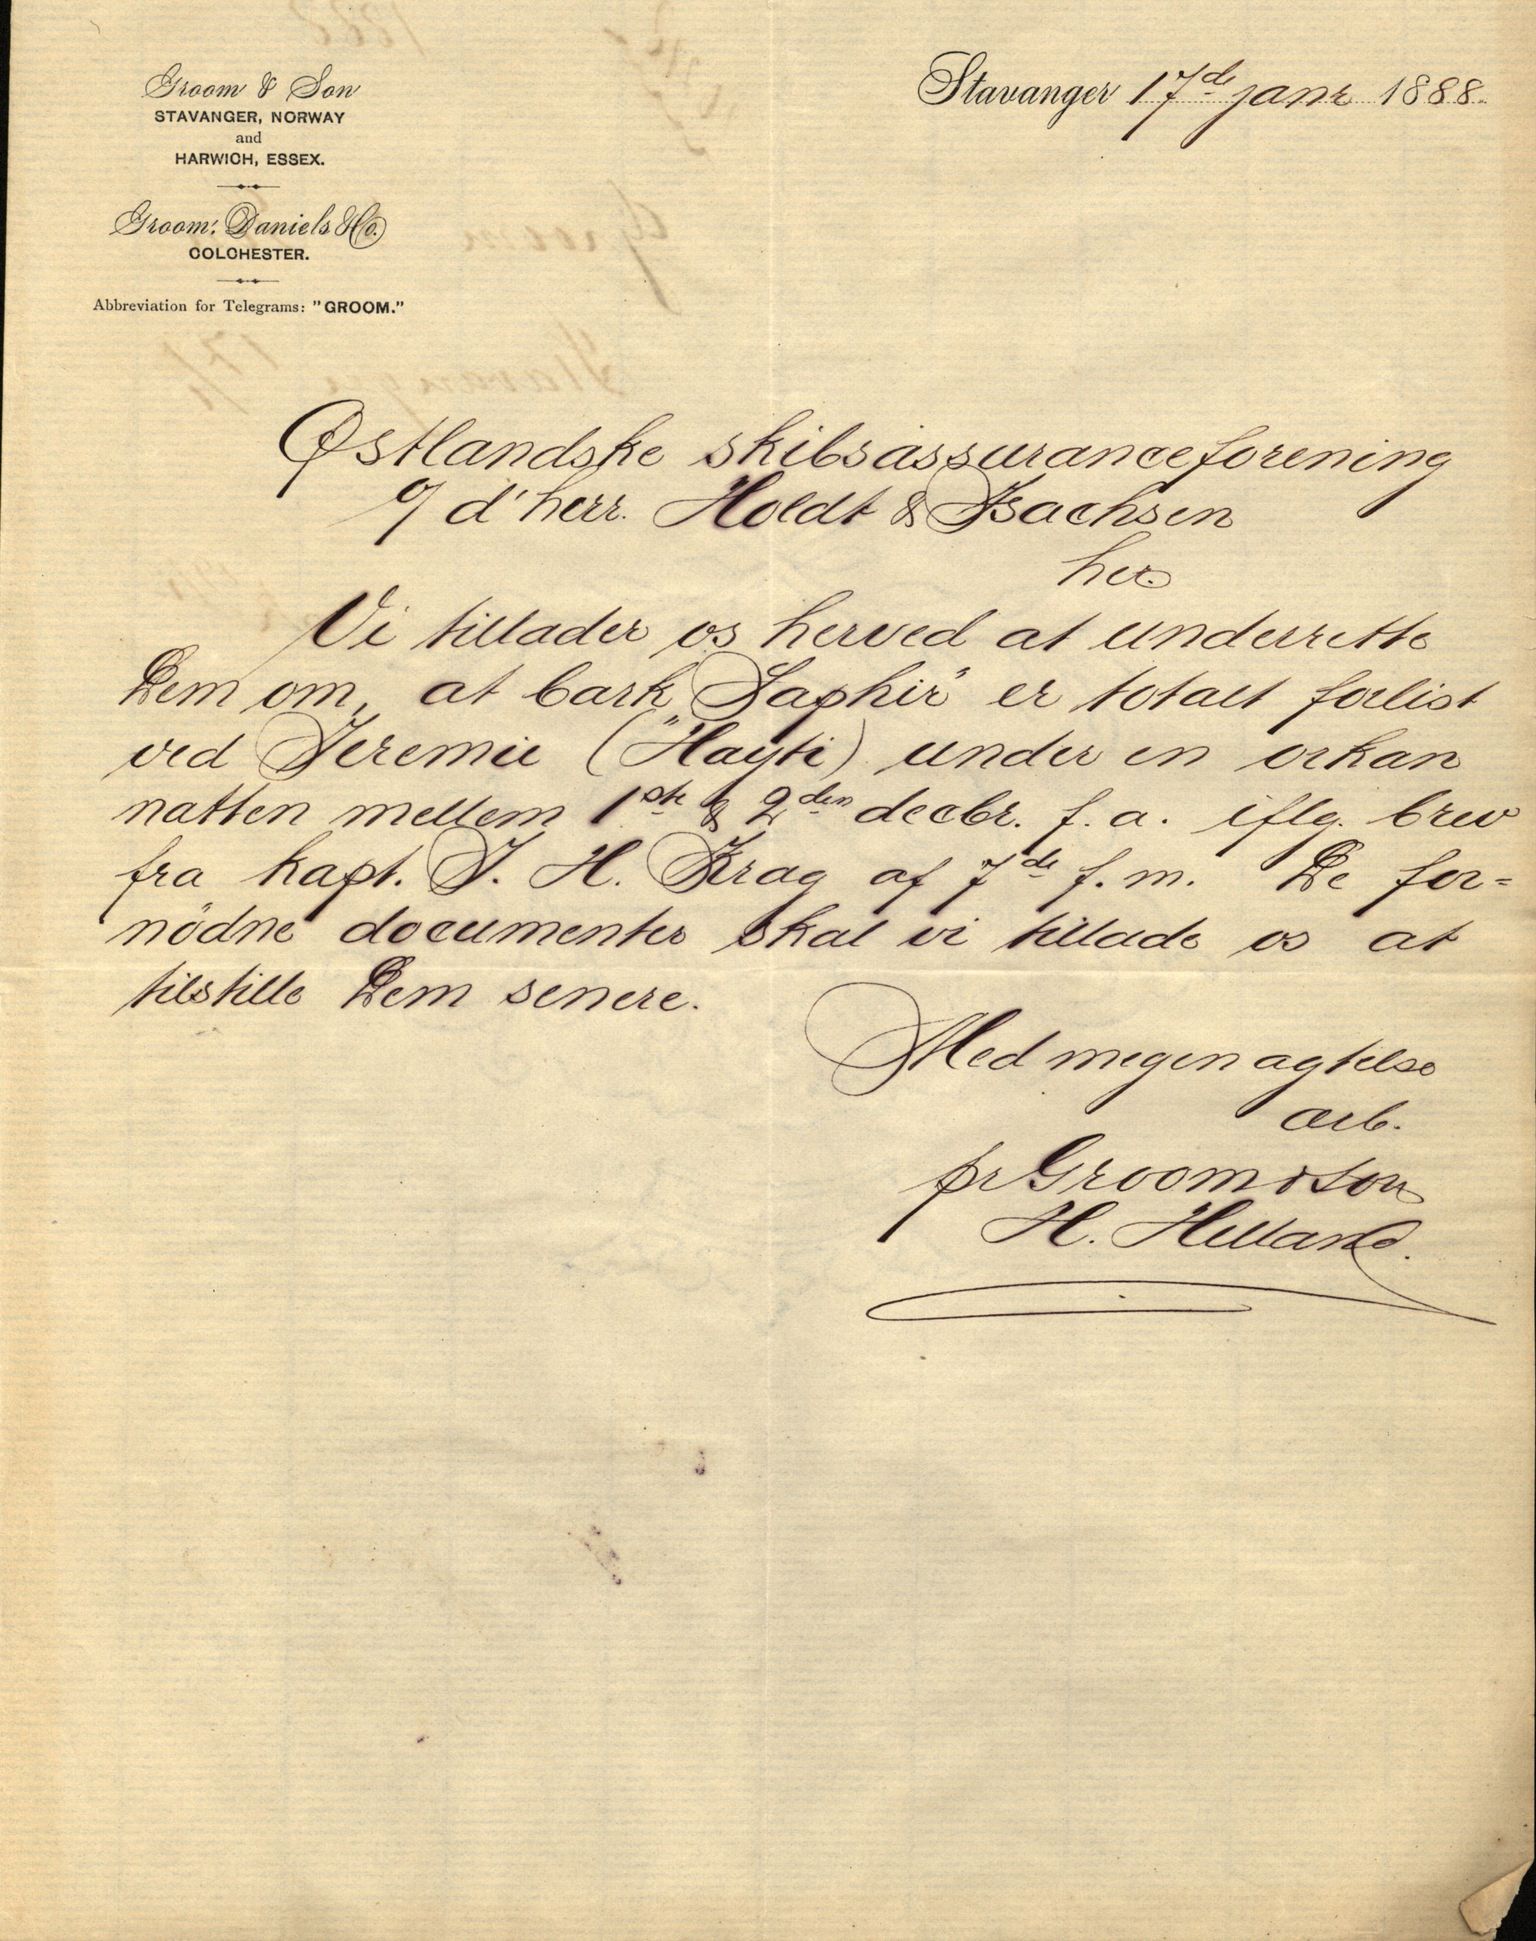 Groom & Son
STAVANGER, NORWAY
and
HARWICH, ESSEX.
Groom, Daniels & Co.
COLCHESTER.
Abbreviation for Telegrams: "GROOM."
Stavanger 17de janr 1888.
Østlandske skibsassuranceforening
c/ d'herr. Holdt & Isachsen
her.
Vi tillader os herved at underrette
Dem om, at bark "Saphir" er totalt forlist
ved Jeremie (Hayti) under en orkan
natten mellem 1ste & 2den decbr. f. a. iflg. brev
fra kapt. J. H. Krag af 7de f. m. De for=
nödne documenter skal vi tillade os at
tilstille Dem senere.
Med megen agtelse
ærb.
pr Groom & Son
H. Helland.